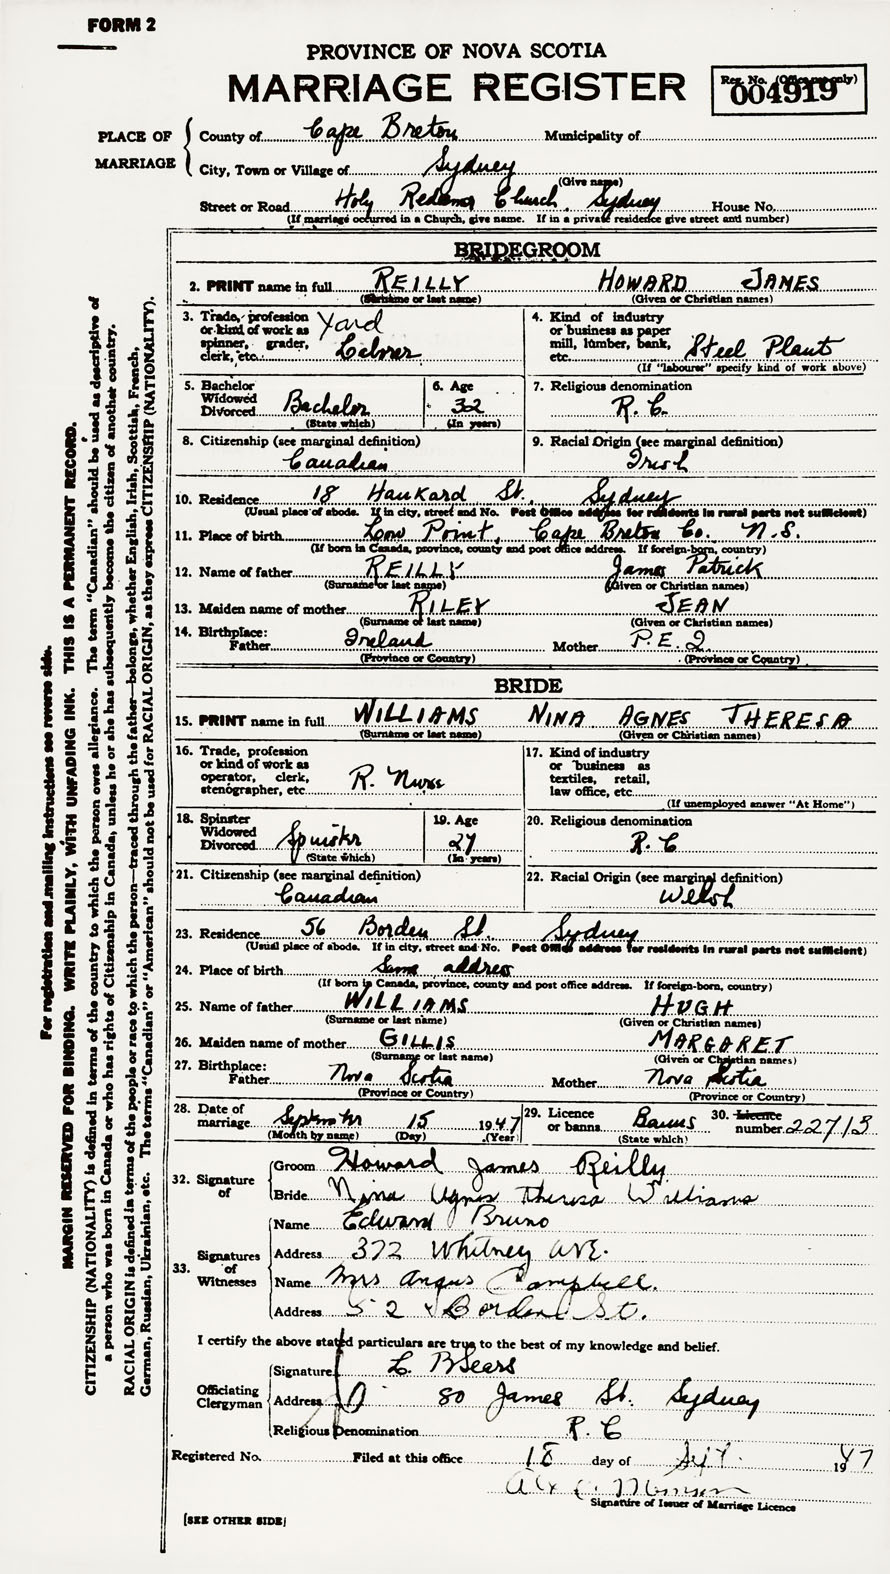 FORM 2
PROVINCE OF NOVA SCOTIA
MARRIAGE REGISTER
Reg. No. (Office use only)
004919
PLACE OF MARRIAGE
County of Cape Breton Municipality of
City, Town or Village of Sydney
(Give name)
Street or Road Holy Church, Sydney House No.
(If marriage occurred in a Church, give name. If in a private residence give street and number)
BRIDEGROOM
2. PRINT name in full REILLY HOWARD JAMES
(Surname or last name) (Given or Christian names)
3. Trade, profession or kind of work as spinner, grader, clerk, etc. Yard Laborer
4. Kind of industry or business as paper mill, lumber, bank, etc. Steel Plant
(If "labourer" specify kind of work above)
5. Bachelor Widowed Divorced Bachelor
(State which)
6. Age 32
(In years)
7. Religious denomination
R. C.
8. Citizenship (see marginal definition)
Canadian
9. Racial Origin (see marginal definition)
Irish
10. Residence 18 Hankard St. Sydney
(Usual place of abode. If in city, street and No. Post Office address for residents in rural parts not sufficient)
11. Place of birth Low Point, Cape Breton Co. N.S.
(If born in Canada, province, county and post office address. If foreign-born, country)
12. Name of father REILLY James Patrick
(Surname or last name) (Given or Christian names)
13. Maiden name of mother RILEY JEAN
(Surname or last name) (Given or Christian names)
14. Birthplace: Father Ireland Mother P.E.I.
(Province or Country) (Province or Country)
BRIDE
15. PRINT name in full WILLIAMS NINA AGNES THERESA
(Surname or last name) (Given or Christian names)
16. Trade, profession or kind of work as operator, clerk, stenographer, etc. R. Nurse
17. Kind of industry or business as textiles, retail, law office, etc.
(If unemployed answer "At Home")
18. Spinster Widowed Divorced Spinster
(State which)
19. Age 27
(In years)
20. Religious denomination
R. C
21. Citizenship (see marginal definition)
Canadian
22. Racial Origin (see marginal definition)
Welsh
23. Residence 56 Borden St. Sydney
(Usual place of abode. If in city, street and No. Post Office address for residents in rural parts not sufficient)
24. Place of birth Same address
(If born in Canada, province, county and post office address. If foreign-born, country)
25. Name of father WILLIAMS HUGH
(Surname or last name) (Given or Christian names)
26. Maiden name of mother GILLIS MARGARET
(Surname or last name) (Given or Christian names)
27. Birthplace: Father Nova Scotia Mother Nova Scotia
(Province or Country) (Province or Country)
28. Date of marriage September 15 1947
(Month by name) (Day) (Year)
29. Licence or banns Banns
(State which)
30. Licence number 22713
32. Signature of
Groom Howard James Reilly
Bride Nina Agnes Theresa Williams
33. Signatures of Witnesses
Name Edward Bruno
Address 372 Whitney AVE.
Name Mrs Angus Campbell.
Address 52 Borden St.
I certify the above stated particulars are true to the best of my knowledge and belief.
Officiating Clergyman
Signature L. B Sears
Address 80 James St. Sydney
Religious Denomination R. C
Registered No. Filed at this office 18 day of Sept. 1947
Signature of Issuer of Marriage Licence
[SEE OTHER SIDE]
For registration and mailing instructions see reverse side.
MARGIN RESERVED FOR BINDING. WRITE PLAINLY, WITH UNFADING INK. THIS IS A PERMANENT RECORD.
CITIZENSHIP (NATIONALITY) is defined in terms of the country to which the person owes allegiance. The term "Canadian" should be used as descriptive of
a person who was born in Canada or who has rights of Citizenship in Canada, unless he or she has subsequently become the citizen of another country.
RACIAL ORIGIN is defined in terms of the people or race to which the person—traced through the father—belongs, whether English, Irish, Scottish, French,
German, Russian, Ukrainian, etc. The terms "Canadian" or "American" should not be used for RACIAL ORIGIN, as they express CITIZENSHIP (NATIONALITY).